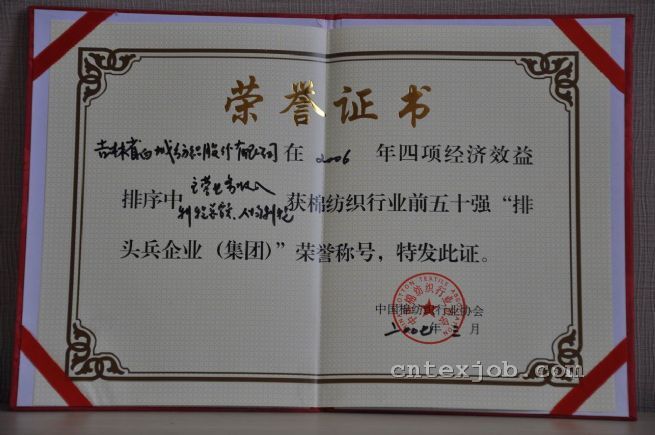 荣誉证书
吉林省白城纺织股份有限公司在 2006 年四项经济效益
排序中 主营业务收入
利税总额、人均利税 获棉纺织行业前五十强“排
头兵企业（集团）”荣誉称号，特发此证。
中国棉纺织行业协会
二〇〇七年三月
cntexjob.com